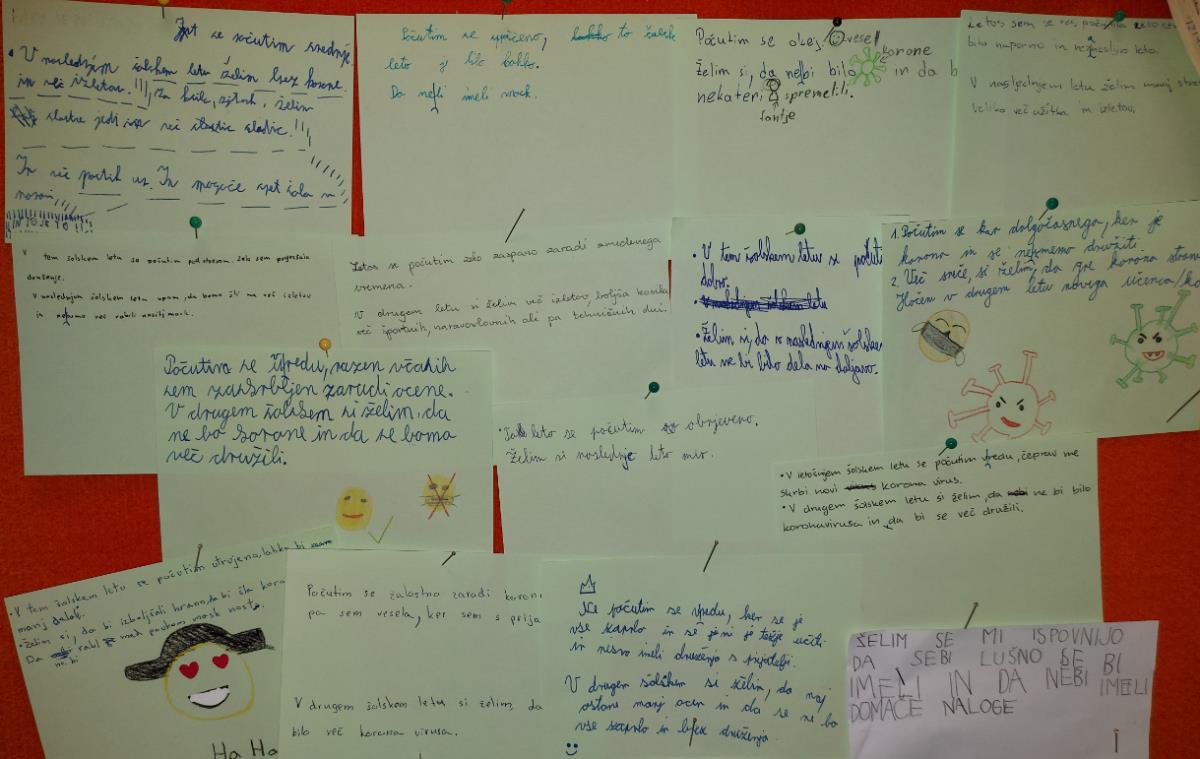 Jst se počutim srednje
• V naslednjem šolskem letu želim brez korone
in več izletov.!!!
slastne jedi več slastic.!!
In več počitk
IN TO JE TO !!!
Počutim se
to šolsko
leto bi bilo lahko.
Da nebi imeli mask.
Počutim se okej, vesel
korone
Želim si, da nebi bilo in da b
nekateri spremenili.
fantje
Letos sem se
bilo naporno in leto.
V naslednjem letu želim manj stre
veliko več užitka in izletov.
V tem šolskem letu se počutim pod stresom, zelo sem pogrešala
druženje.
V naslednjem šolskem letu upam, da bomo šli na več izletov
in nebomo več rabili nositi mask.
Letos se počutim zelo zaspano zaradi
vremena.
V drugem letu si želim več izletov, boljša kosila,
več športnih, naravoslovnih ali pa tehničnih dni.
• V tem šolskem letu se počutim
dobro.
• Želim si, da v naslednjem šolskem
letu ne bi bilo dela na daljavo.
1. Počutim se kar dolgočasnega, ker je
korona in se nesmemo družiti.
2. Več sreče, si želim, da gre korona stran.
Hočem v drugem letu novega učenca/ko
Počutim se vredu, razen včasih
sem zaskrbljen zaradi ocene.
V drugem šolskem si želim, da
ne bo korone in da se bomo
več družili.
• Tako leto se počutim obrnjeveno.
Želim si naslednje leto mir.
• V letošnjem šolskem letu se počutim vredu, čeprav me
skrbi novi korona virus.
• V drugem šolskem letu si želim, da ne bi bilo
koronavirusa in da bi se več družili.
• V tem šolskem letu se počutim otrujeno, lahko bi
manj delali.
• Želim si, da bi izboljšali hrano, da bi šla koro
Da nebi rabl mask
Ha Ha
Počutim se žalostno zaradi koron
pa sem vesela, ker sem s prija
V drugem šolskem letu si želim, da
bilo več korona virusa.
Ne počutim se vredu, ker se je
vse zaprlo in se je težje učiti
in nismo imeli druženja s prijatelji.
V drugem šolskem si želim, da naj
ostane manj ocen in da se ne bo
vse zaprlo in druženja.
ŽELIM SE MI ISPOVNIJO
DA SEBI LUŠNO SE BI
IMELI IN DA NEBI IMELI
DOMAČE NALOGE